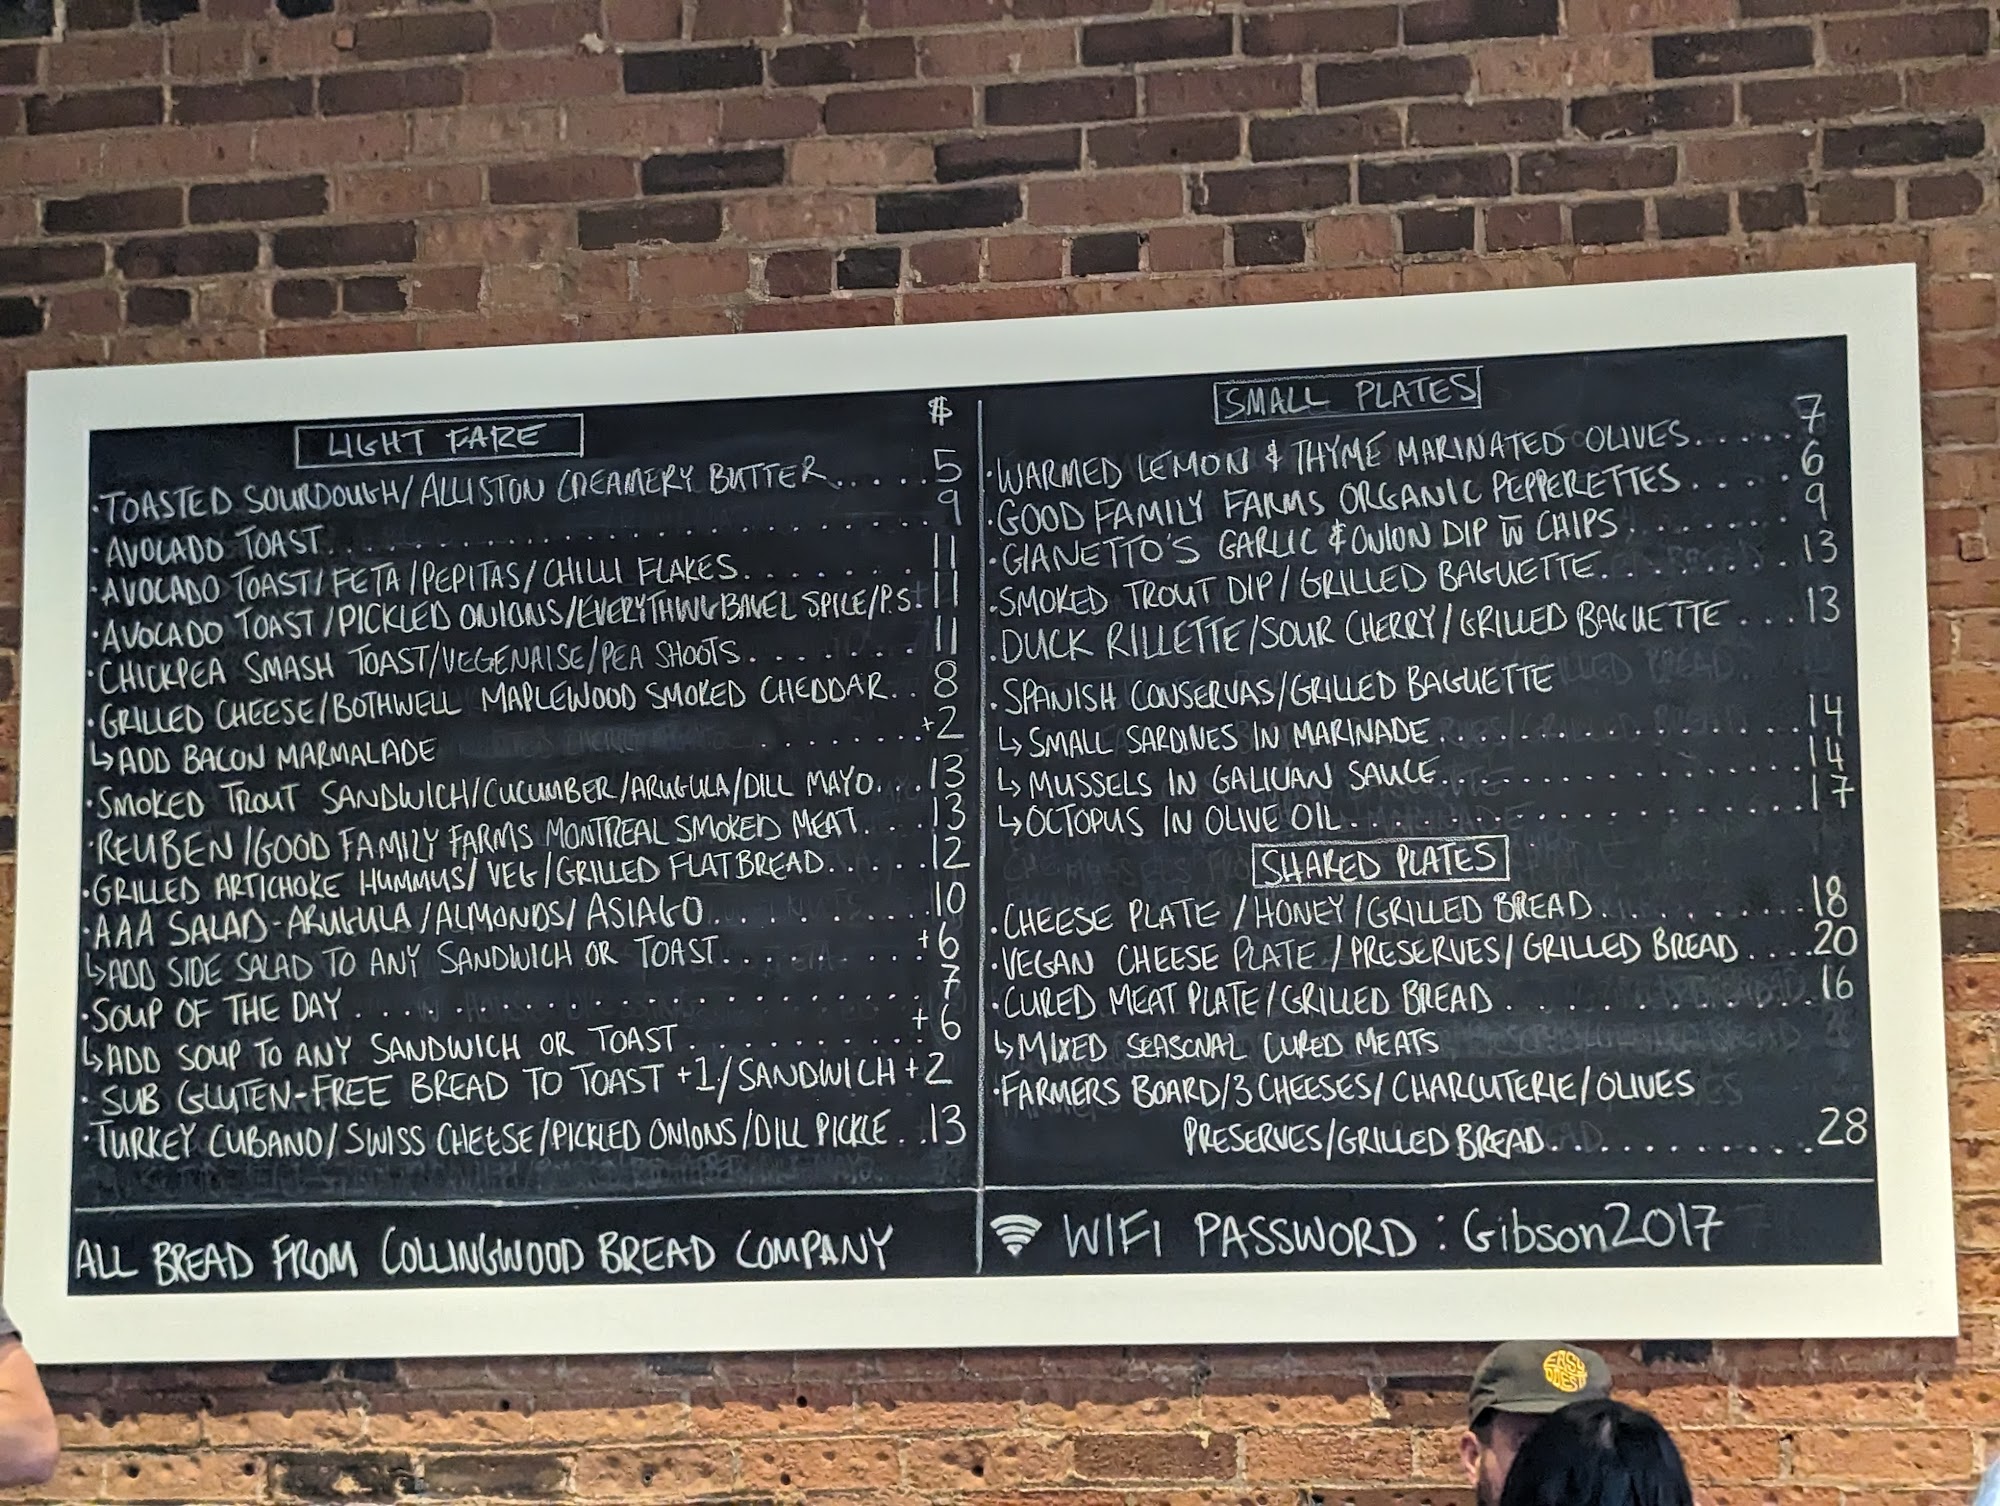 LIGHT FARE
$
·TOASTED SOURDOUGH/ALLISTON CREAMERY BUTTER.....5
·AVOCADO TOAST......................9
·AVOCADO TOAST/FETA/PEPITAS/CHILLI FLAKES........11
·AVOCADO TOAST/PICKLED ONIONS/EVERYTHINGBAGEL SPICE/P.S.11
·CHICKPEA SMASH TOAST/VEGENAISE/PEA SHOOTS........11
·GRILLED CHEESE/BOTHWELL MAPLEWOOD SMOKED CHEDDAR..8
↳ADD BACON MARMALADE ........+2
·SMOKED TROUT SANDWICH/CUCUMBER/ARUGULA/DILL MAYO...13
·REUBEN/GOOD FAMILY FARMS MONTREAL SMOKED MEAT....13
·GRILLED ARTICHOKE HUMMUS/VEG/GRILLED FLATBREAD.....12
·AAA SALAD-ARUGULA/ALMONDS/ASIAGO..........10
↳ADD SIDE SALAD TO ANY SANDWICH OR TOAST.........+6
·SOUP OF THE DAY....................7
↳ADD SOUP TO ANY SANDWICH OR TOAST..........+6
·SUB GLUTEN-FREE BREAD TO TOAST +1/SANDWICH +2
·TURKEY CUBANO/SWISS CHEESE/PICKLED ONIONS/DILL PICKLE..13
ALL BREAD FROM COLLINGWOOD BREAD COMPANY
SMALL PLATES
·WARMED LEMON & THYME MARINATED OLIVES.....7
·GOOD FAMILY FARMS ORGANIC PEPPERETTES.....6
·GIANETTO'S GARLIC & ONION DIP W̅ CHIPS........9
·SMOKED TROUT DIP/GRILLED BAGUETTE.........13
·DUCK RILLETTE/SOUR CHERRY/GRILLED BAGUETTE...13
·SPANISH CONSERVAS/GRILLED BAGUETTE
↳SMALL SARDINES IN MARINADE.................14
↳MUSSELS IN GALICIAN SAUCE.................14
↳OCTOPUS IN OLIVE OIL.....................17
SHARED PLATES
·CHEESE PLATE/HONEY/GRILLED BREAD..........18
·VEGAN CHEESE PLATE/PRESERVES/GRILLED BREAD....20
·CURED MEAT PLATE/GRILLED BREAD.............16
↳MIXED SEASONAL CURED MEATS
·FARMERS BOARD/3 CHEESES/CHARCUTERIE/OLIVES
PRESERVES/GRILLED BREAD.............28
WIFI PASSWORD : Gibson2017